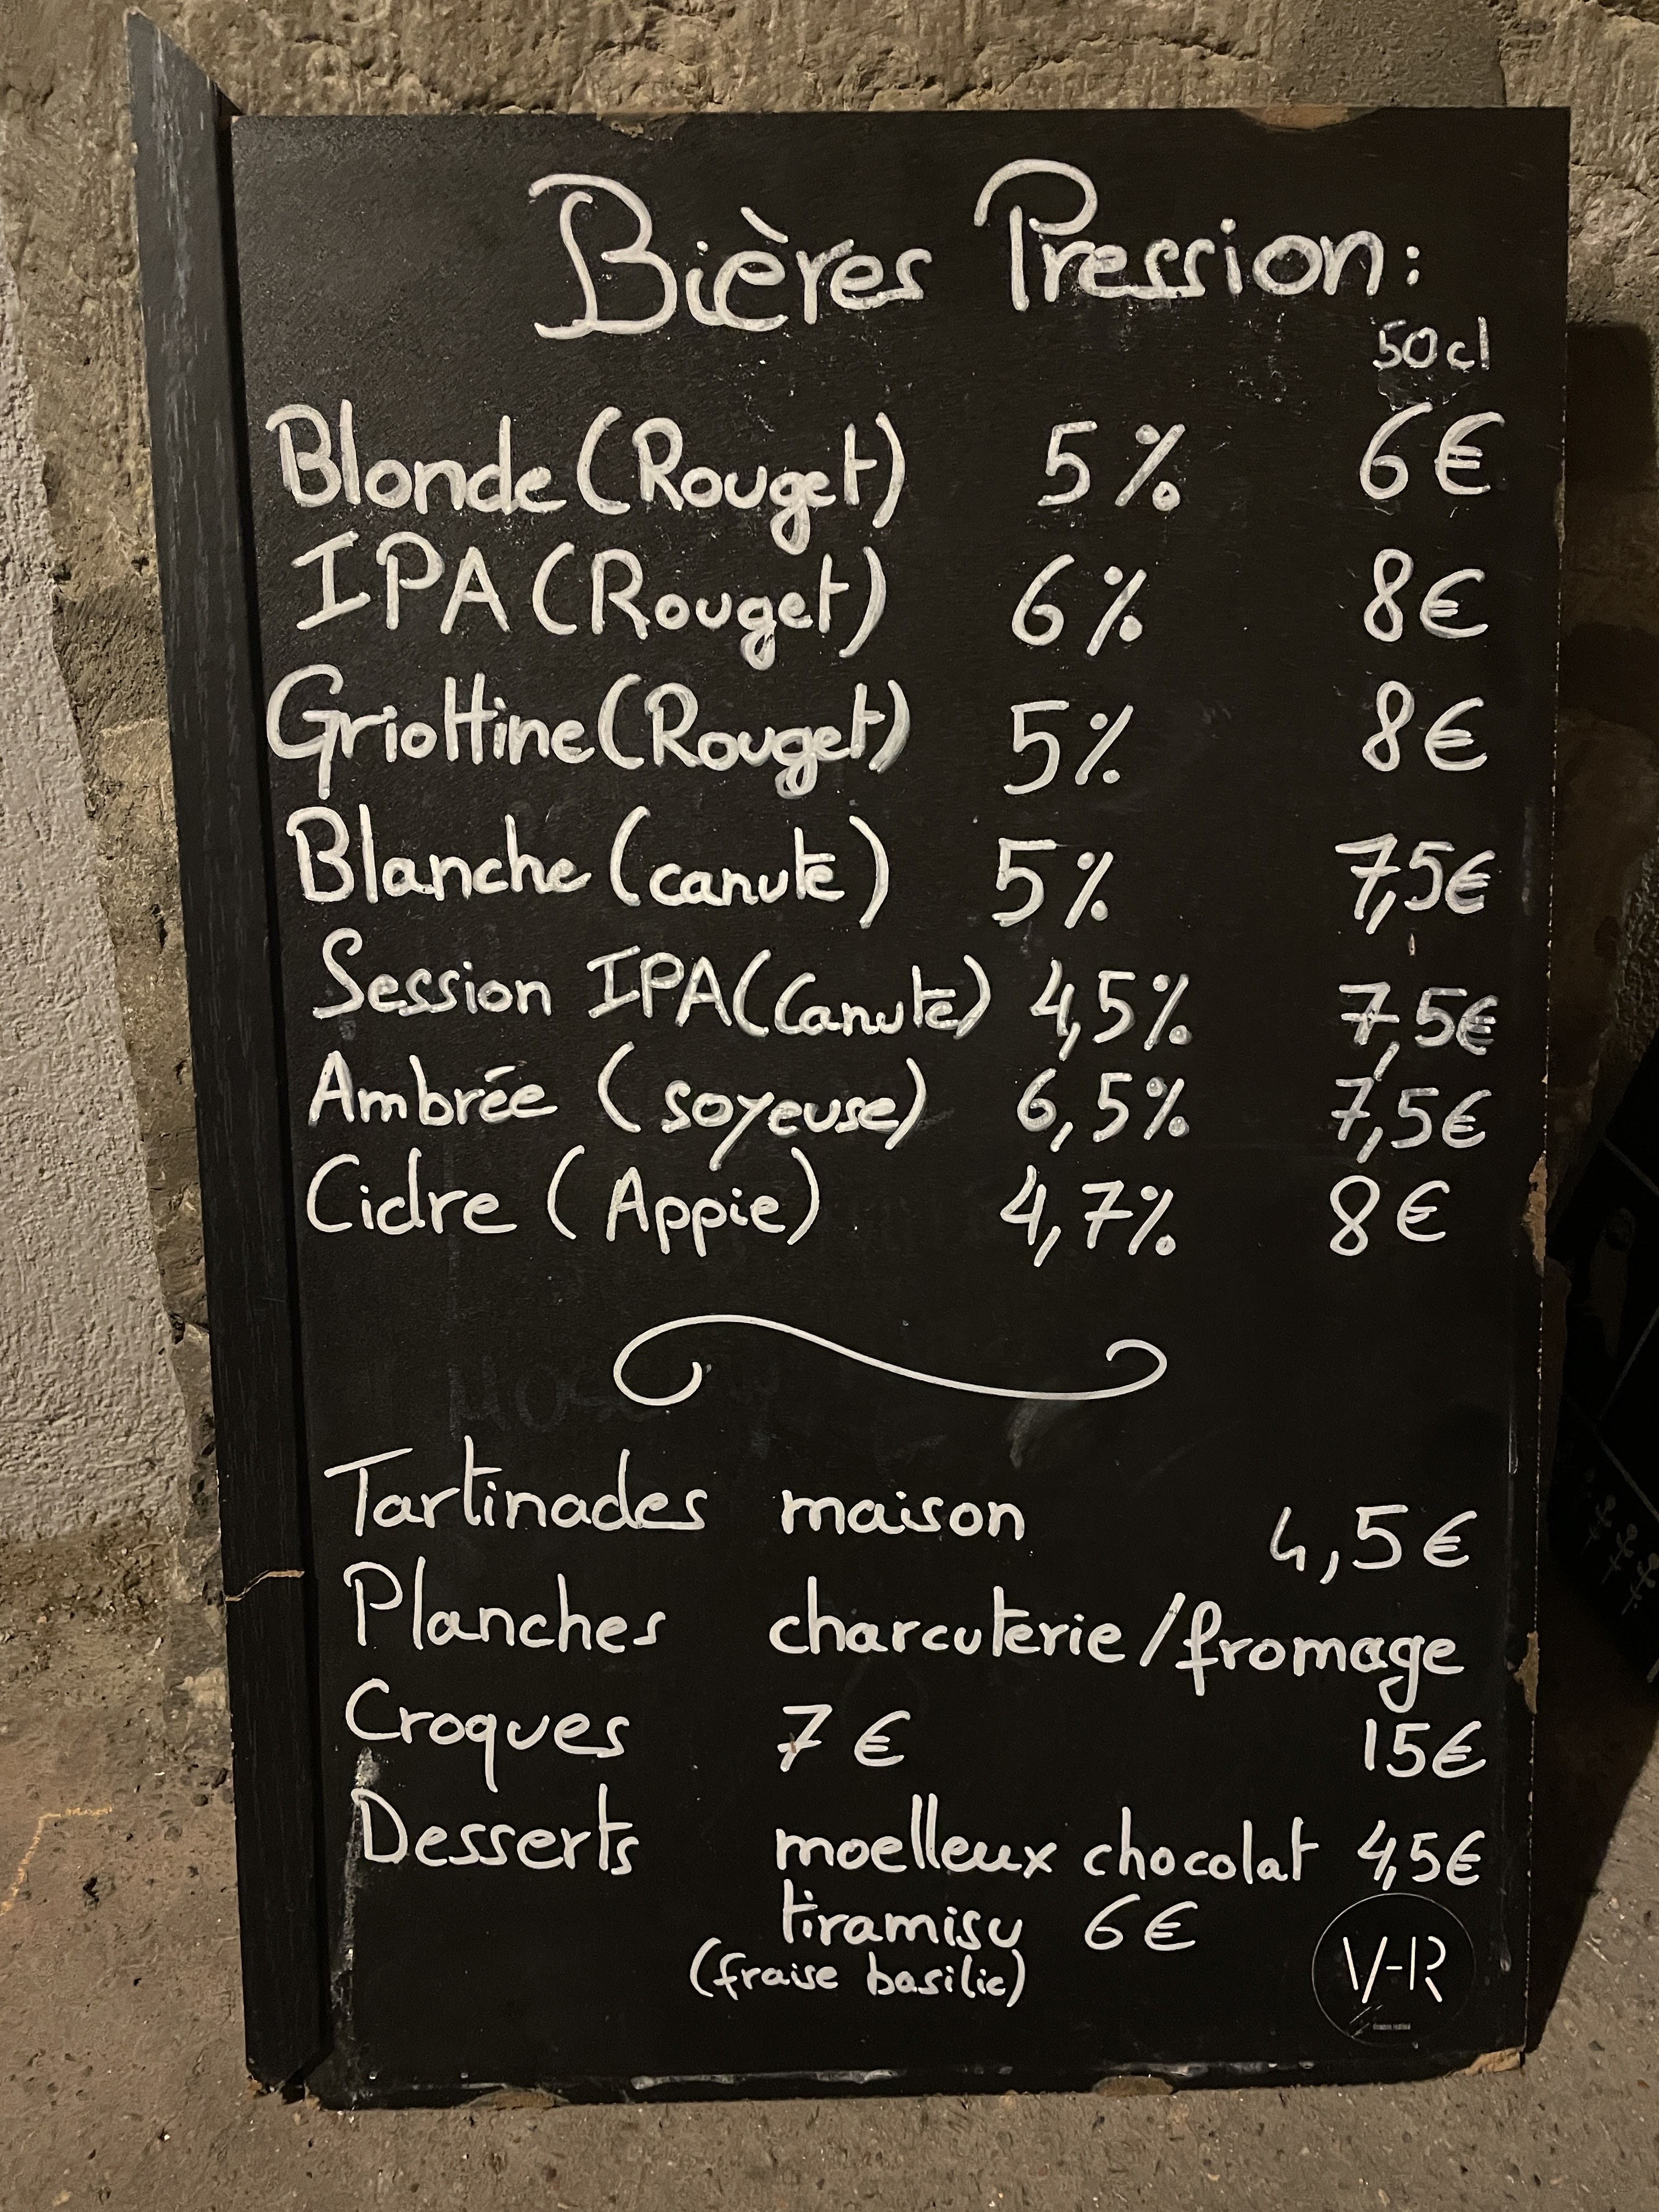 Bières Pression:
50cl
Blonde (Rouget) 5% 6€
IPA (Rouget) 6% 8€
Griottine (Rouget) 5% 8€
Blanche (canute) 5% 7,5€
Session IPA (Canute) 4,5% 7,5€
Ambrée (soyeuse) 6,5% 7,5€
Cidre (Appie) 4,7% 8€
Tartinades maison 4,5€
Planches charcuterie/fromage
Croques 7€ 15€
Desserts moelleux chocolat 4,5€
tiramisu 6€
(fraise basilic)
V-R